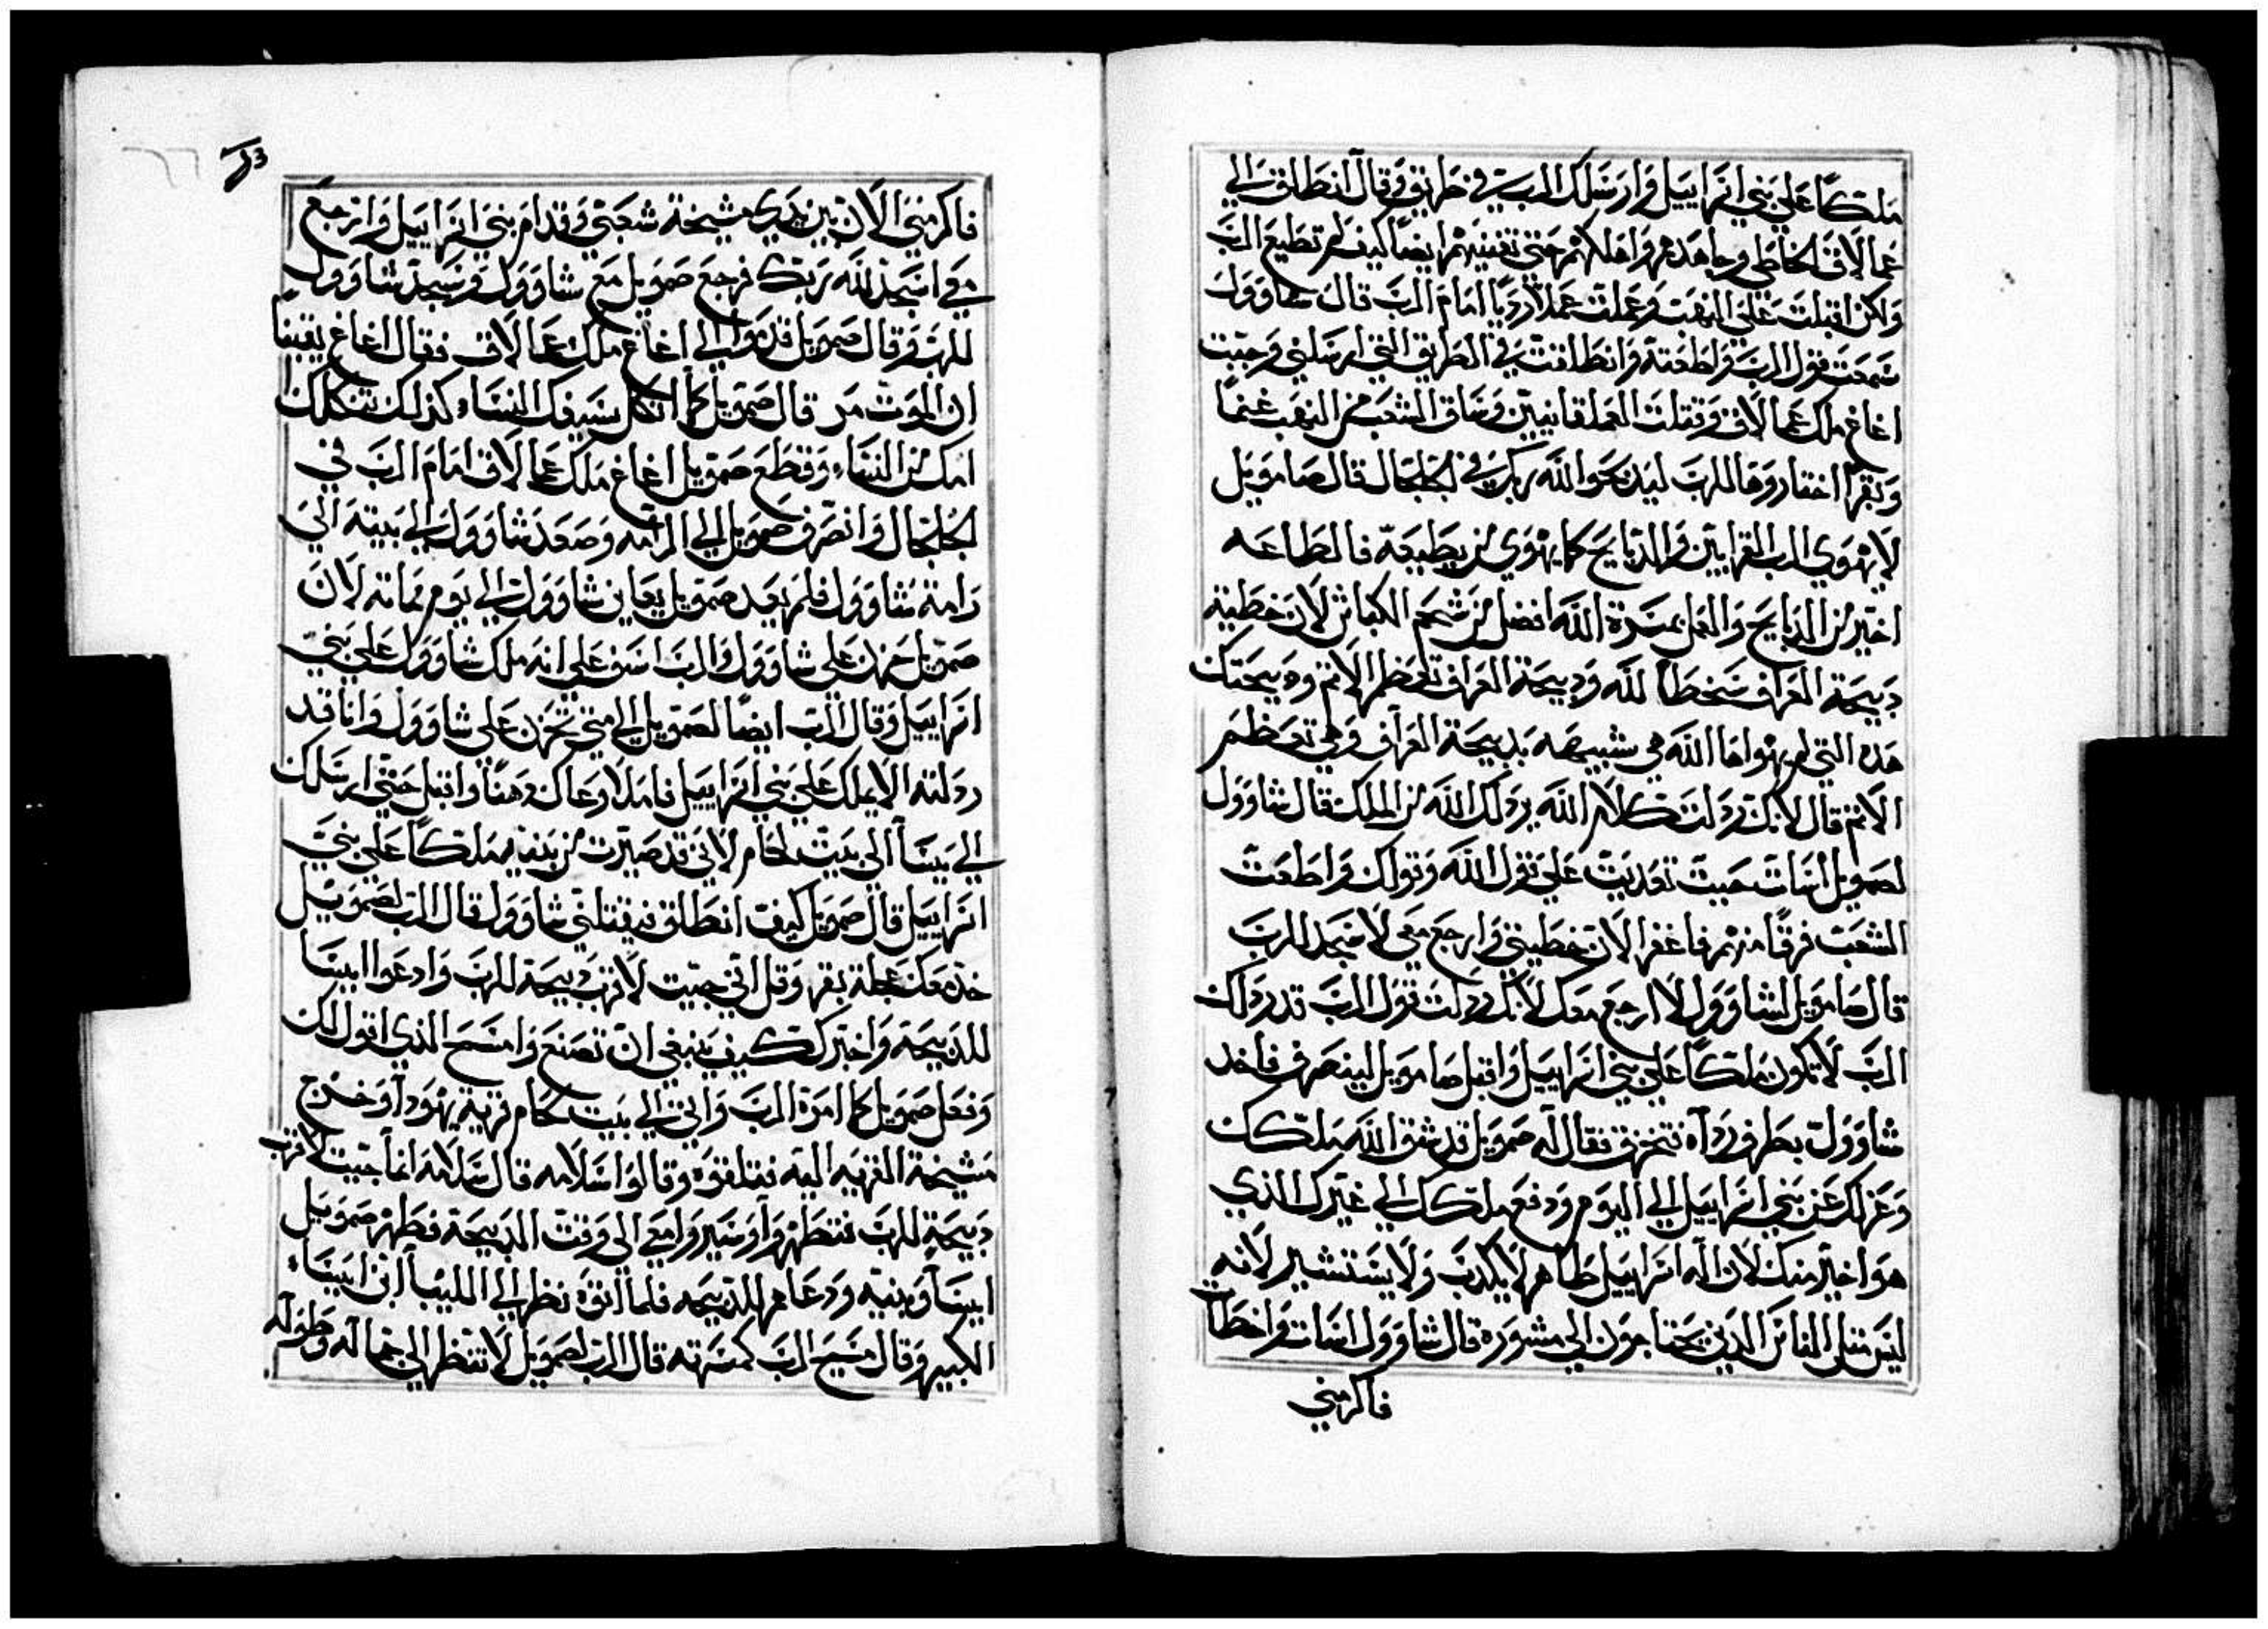 ملكًا علي بني اسراييل وارسلك الرب في طريق وقال انطلق الي
عمالاق الخاطي وجاهدهم واهلكهم حتي تفنيهم ايضًا كيف لم تطيع الرب
ولكن اقبلت علي النهب وعملت عملاً رديًا امام الرب قال شاوول
سمعت قول الرب واطعته وانطلقت في الطريق التي ارسلني وجيت
اغاغ ملك عمالاق وقتلت العملقانيين وساق الشعب من النهب غنمًا
وبقرا اختاروها للرب ليدبحوا لله ربك في الجلجال قال صامويل
لا يهوي الرب القرابين والدبايح كما يهوي من يطيعه فالطاعه
اخير من الدبايح والعمل بمسرة الله افضل من شحم الكباش لان خطية
دبيحة العراف سخطًا لله ودبيحة العراف تعظم الاتم ودبيحتك
هده التي لم يهواها الله هي شبيهه بدبيحة العراف وهي تعظم
الاتم قال لانك ردلت كلام الله يردلك الله من الملك قال شاوول
لصمويل اسات حيت تعديت علي قول الله وقولك واطعت
الشعب فرقًا منهم فاغفر الان خطيتي وارجع معي لاسجد للرب
قال صامويل لشاوول لا ارجع معك لانك ردلت قول الرب قد ردلك
الرب لا تكون ملكًا علي بني اسراييل واقبل صامويل لينصرف فاخد
شاوول بطرف رداه فتخزق فقال له صمويل قد شق الله ملكك
وعزلك عن بني اسراييل الي اليوم ودفع ملكك الي غيرك الذي
هو اخير منك لان اله اسراييل طاهر لا يكدب ولا يستشير لانه
ليس متل الناس الدين يحتاجون الي مشوره قال شاوول اسات واخطات
فاكرمني
فاكرمني الان بين يدي مشيخة شعبي وقدام بني اسراييل وارجع
معي اسجد لله ربك فرجع صمويل مع شاوول وسجد شاوول
للرب وقال صمويل قدموا الي اغاغ ملك عمالاق فقال اغاغ يقينًا
ان الموت مر قال صمويل كما اتكل سيفك النساء كذلك تتكل
امك من النساء وقطع صمويل اغاغ ملك عمالاق امام الرب في
الجلجال وانصرف صمويل الي الرامه وصعد شاوول الي بيته الي
رامة شاوول فلم يعد صمويل يعاين شاوول الي يوم مماته لان
صمويل حزن علي شاوول والرب اسف علي انه ملك شاوول علي بني
اسراييل وقال الرب ايضًا لصمويل الي متي تحزن علي شاوول وانا قد
ردلته الا يملك علي بني اسراييل فاملا وعاك دهنًا واقبل حتي ارسلك
الي يسا الي بيت لحام لاني قد صيرت من بنيه ملكًا علي بني
اسراييل قال صمويل كيف انطلق فيقتلني شاوول قال الرب لصمويل
خد معك عجلة بقر وقل اني جيت لاقرب دبيحة للرب وادعوا ايسا
للدبيحة واخبرك كيف ينبغي ان تصنع وامسح الذي اقول لك
وفعل صمويل كما امره الرب واتي الي بيت لحام قرية يهودا وخرج
مشيخة القريه اليه فتلقوه وقالوا سلامه قال سلامه انما جيت لاقرب
دبيحة للرب فتطهروا وسيروا معي الي وقت الدبيحة فطهر صمويل
ايسا وبنيه ودعاهم للدبيحه فلما اتوه نظر الي اللياب ابن ايساء
الكبير وقال مسيح الرب كمسرته قال الرب لصمويل لا تنظر الي جماله وطوله